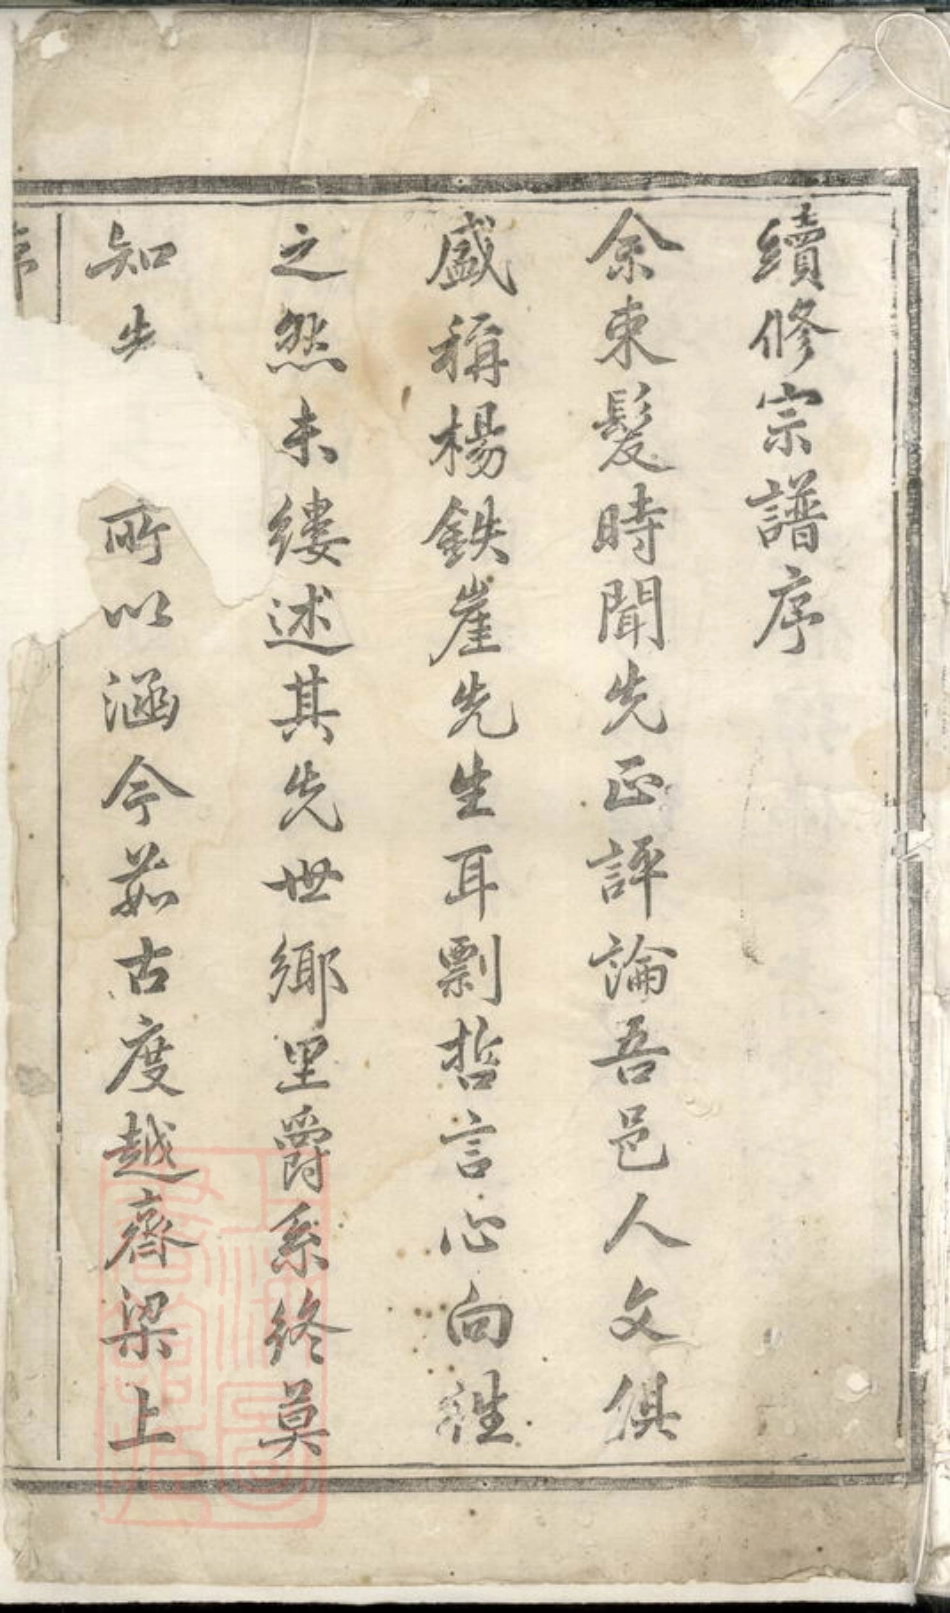 續修宗譜序
余束髮時聞先正評論吾邑人文俱
盛稱楊鉄崖先生耳剽哲言心向徃
之然未縷述其先世鄉里爵系終莫
知先所以涵今茹古度越齊梁上
序